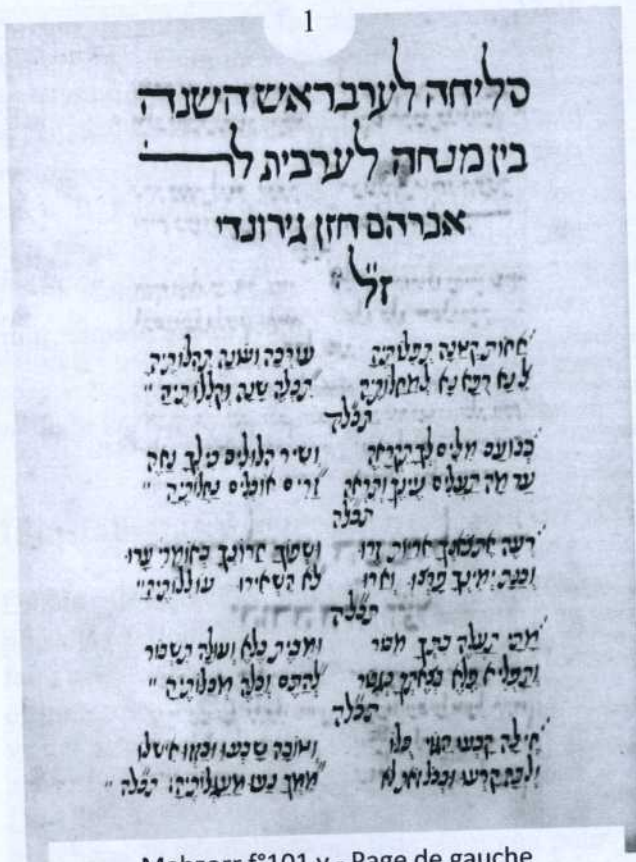 1
סליחה לערב ראש השנה
בין מנחה לערבית לר
אברהם חזן גירונדי
ז״ל
אחות קטנה תפלותיה עורכה ועונה תהלותיה
אל נא רפא נא למחלותיה תכלה שנה וקללותיה
תכלה
בנועם מלים לך תקראה ושיר הלולים כי לך נאה
עד מה תעלים עינך ותראה זרים אוכלים נחלותיה
תכלה
רעה את צאנך אריות זרו ושפוך חרונך באומרי ערו
וכנת ימינך פרצו וארו לא השאירו עוללותיה
תכלה
מתי תעלה בתך מבור ומבית כלא ועולה תשבור
ותפליא פלא בצאתך כגבור להתם וכלה מכלותיה
תכלה
חילה קבעו הגוי כלו וטובה שבעו ובזזו איש לו
ולבה קרעו ובכל זאת לא ממך נעו מעגלותיה: תכלה
Mahzorr f°101 v - Page de gauche